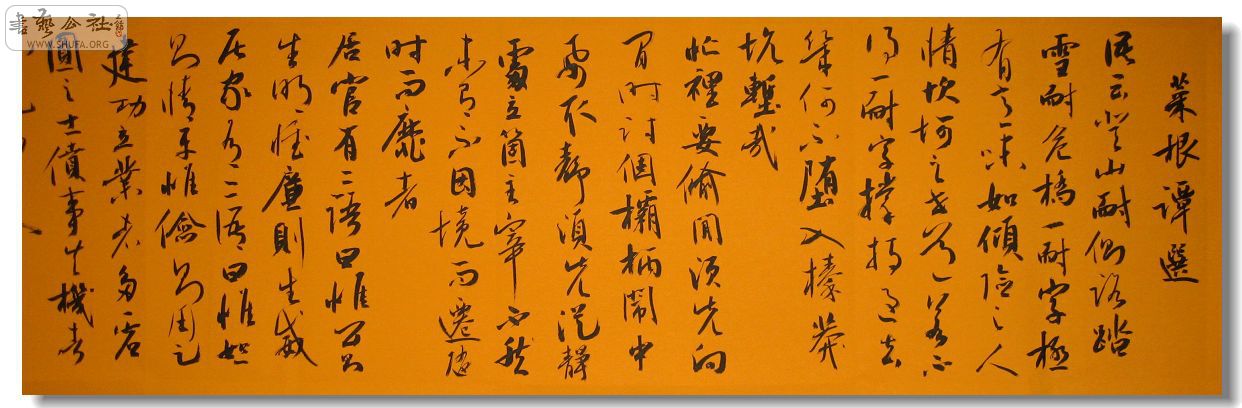 菜根谭選
語云登山耐側路踏
雪耐危橋一耐字極
有意味如傾險之人
情坎坷之世道若不
得一耐字撑持過去
幾何不墮入榛莽
坑塹哉
忙裡要偷閒須先向
閒時討個欛柄鬧中
要取靜須先從靜
處立箇主宰不然
未有不因境而遷隨
時而靡者
居官有二語曰惟公則
生明惟廉則生威
居家有二語曰惟恕
則情平惟儉則用足
建功立業者多虛
圓之士僨事失機者
書藝公社
WWW.SHUFA.ORG